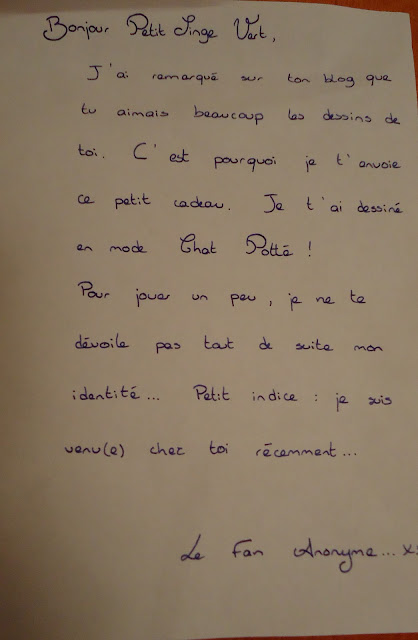 Bonjour Petit Singe Vert,
J'ai remarqué sur ton blog que
tu aimais beaucoup les dessins de
toi. C'est pourquoi je t'envoie
ce petit cadeau. Je t'ai dessiné
en mode Chat Potté !
Pour jouer un peu, je ne te
dévoile pas tout de suite mon
identité... Petit indice : je suis
venu(e) chez toi récemment...
Le Fan Anonyme...